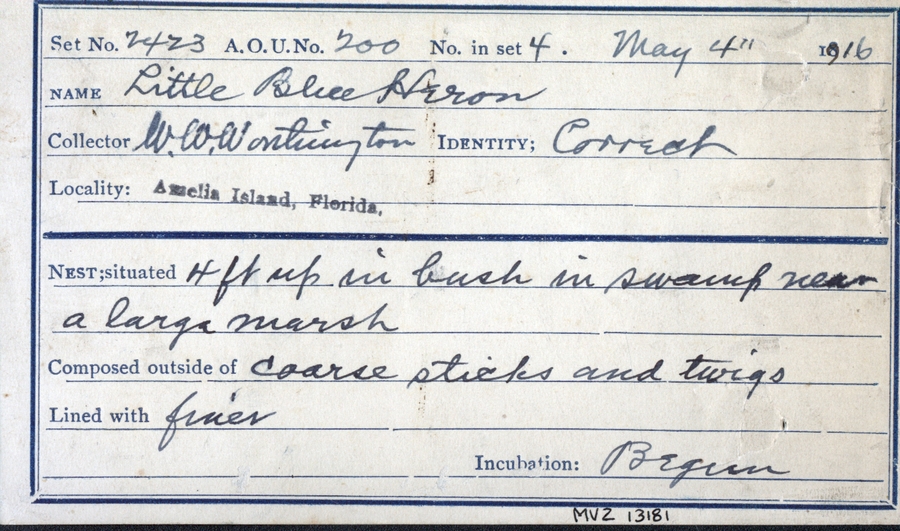 Set No. 2423 A.O.U. No. 200 No. in set 4. May 4" 1916
NAME Little Blue Heron
Collector W.W. Worthington IDENTITY; Correct
Locality: Amelia Island, Florida.
NEST; situated 4 ft up in bush in swamp near
a large marsh
Composed outside of coarse sticks and twigs
Lined with finer
Incubation: Begun
MVZ 13181